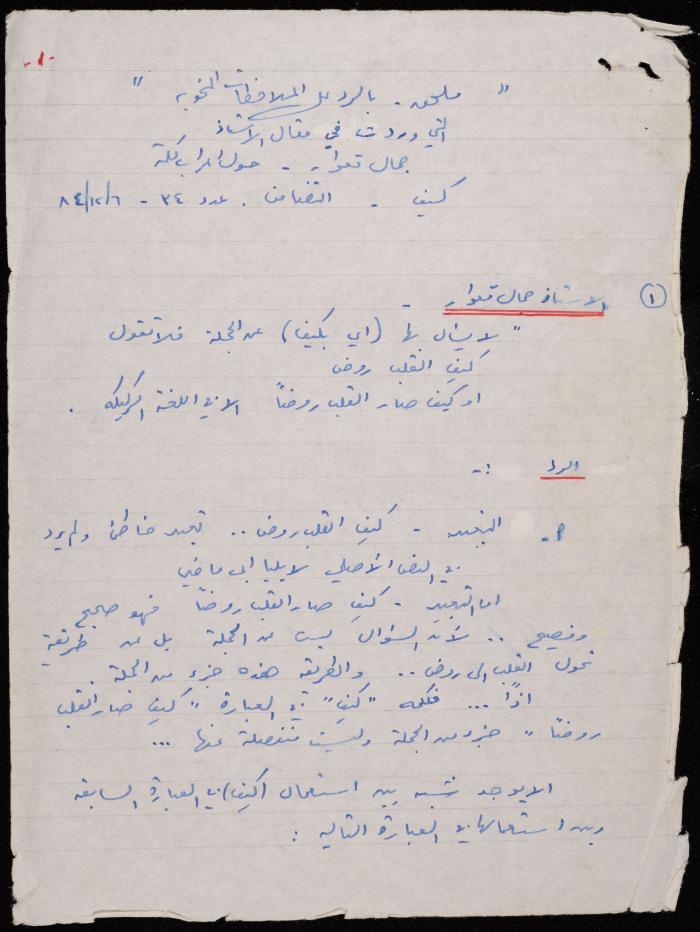 -١-
" ملحق - بالرد على الملاحظات النحويه "
التي وردت في مقال الأستاذ
جمال قعوار - حول اعراب كلمة
كيف - التضامن . عدد ٣٤ - ٨٤/١٢/٦
١ الاستاذ جمال قعوار -
" لا يسأل بها (اي بكيف) عن الجملة فلا تقول
كيف القلب روض
او كيف صار القلب روضاً الا في اللغة الركيكه .
الرد :-
أ- التعبير - كيف القلب روض .. تعبير خاطئ ولم يرد
في النص الأصلي لايليا ابي ماضي
اما التعبير - كيف صار القلب روضاً فهو صحيح
وفصيح .. لأن السؤال ليس عن الجملة بل عن طريقة
تحول القلب الى روض .. والطريقه هذه جزء من الجملة .
اذاً ... فكلمه "كيف" في العبارة "كيف صار القلب
روضاً" جزء من الجملة وليست منفصلة عنها ...
الا يوجد شبه بين استعمال (كيف) في العبارة السابقه
وبين استعمالها في العبارة التاليه :